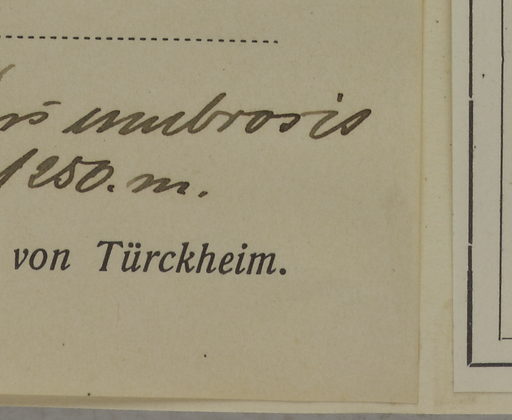 umbrosis
1250. m.
von Türckheim.